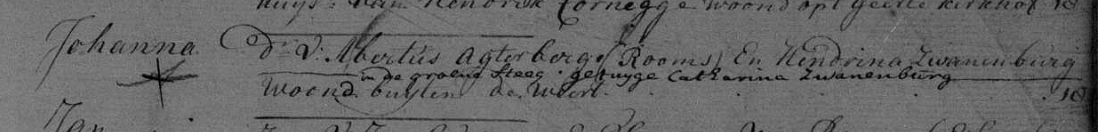 huys: van Hendrik Cornegge woond opt Geerte kerkhof 18
Johanna D: V: Albertus Agterberg (Rooms) En Hendrina Zwanenburg
in de groene steeg. getuyge Catharina Zwanenburg
woond buyten de Weert. 18
Jan